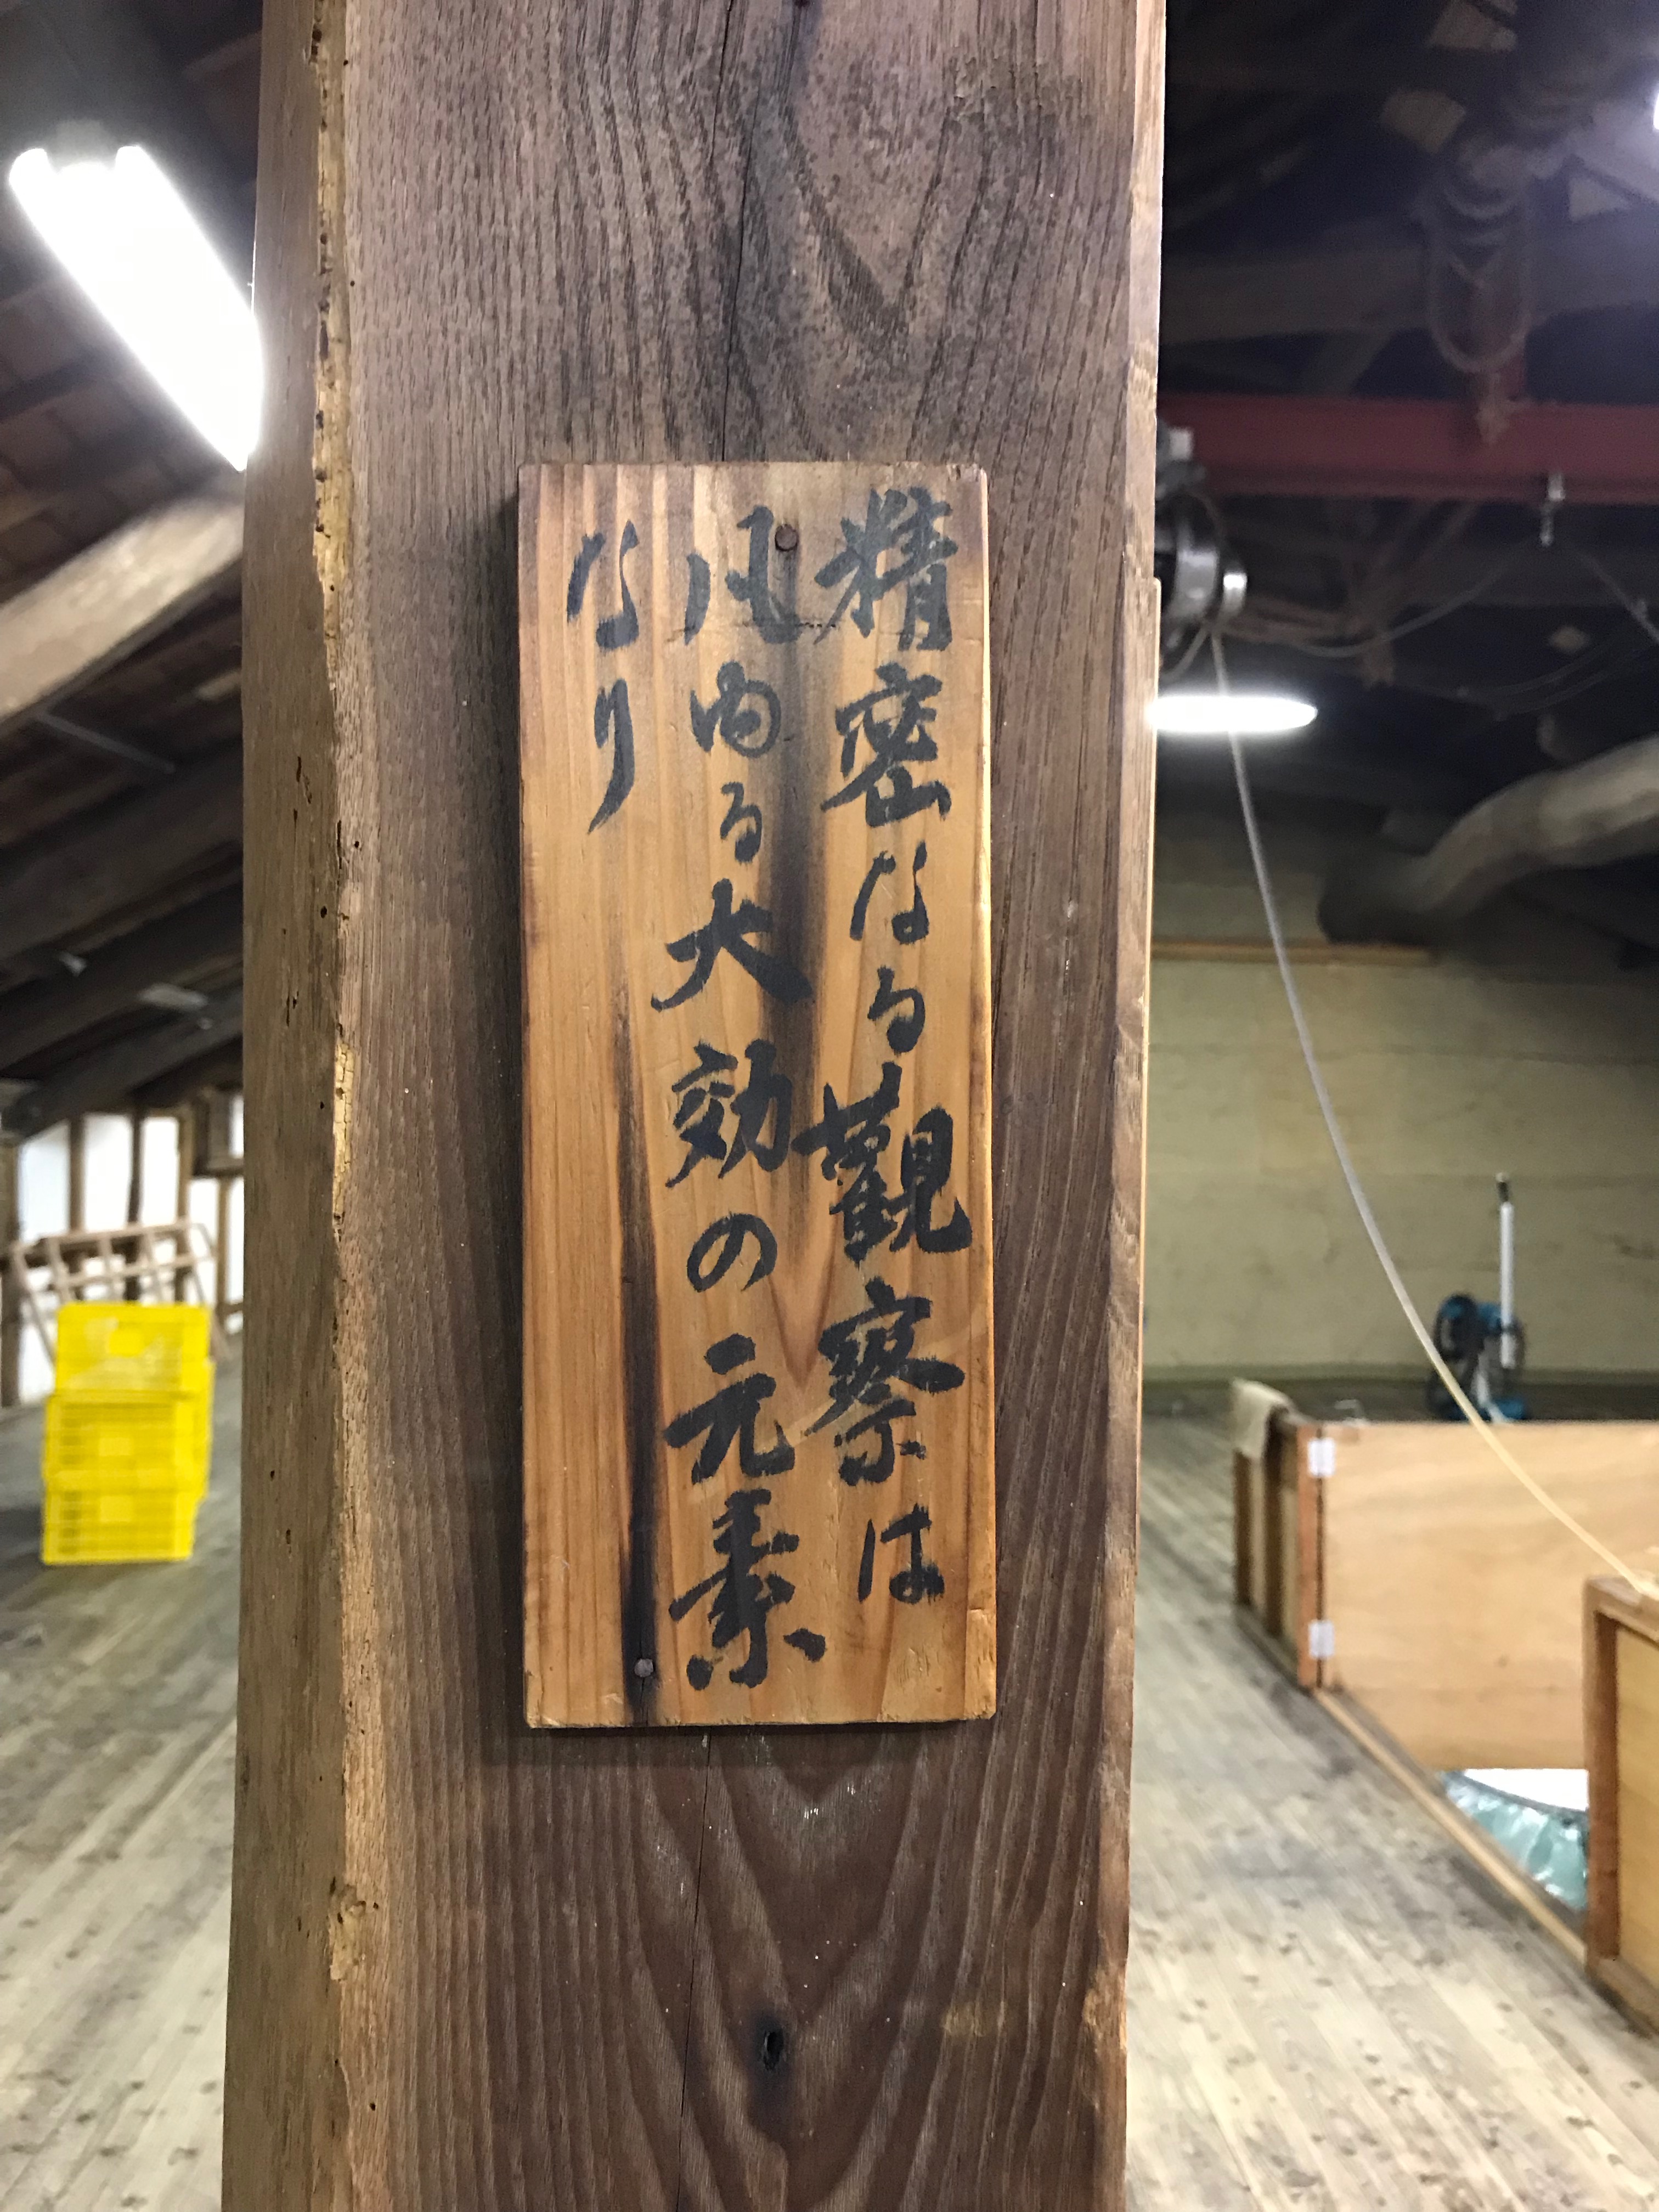 精密なる觀察は
凡ゆる大効の元素
なり